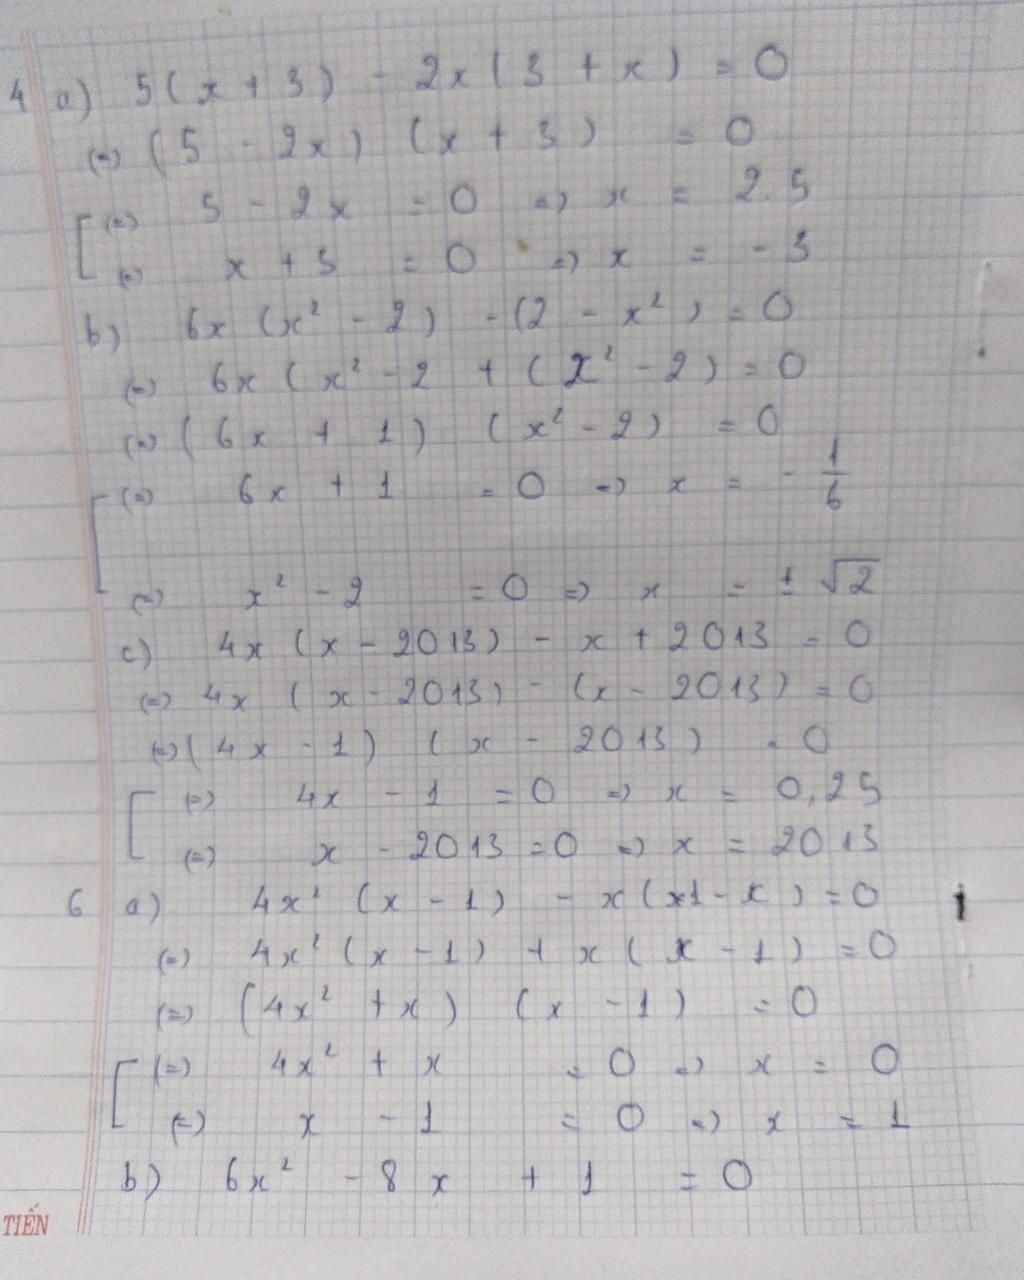 4 a) 5(x + 3) - 2x(3 + x) = 0
(=) (5 - 2x) (x + 3) = 0
(=) 5 - 2x = 0 => x = 2.5
(=) x + 3 = 0 => x = -3
b) 6x (x² - 2) - (2 - x²) = 0
(=) 6x (x² - 2 + (x² - 2) = 0
(=) (6x + 1) (x² - 2) = 0
(=) 6x + 1 = 0 => x = - 1/6
(=) x² - 2 = 0 => x = ± √2
c) 4x (x - 2013) - x + 2013 = 0
(=) 4x (x - 2013) - (x - 2013) = 0
(=) (4x - 1) (x - 2013) = 0
(=) 4x - 1 = 0 => x = 0,25
(=) x - 2013 = 0 => x = 2013
6 a) 4x² (x - 1) - x (x1 - x) = 0
(=) 4x² (x - 1) + x (x - 1) = 0
(=) (4x² + x) (x - 1) = 0
(=) 4x² + x = 0 => x = 0
(=) x - 1 = 0 => x = 1
b) 6x² - 8x + 1 = 0
TIẾN